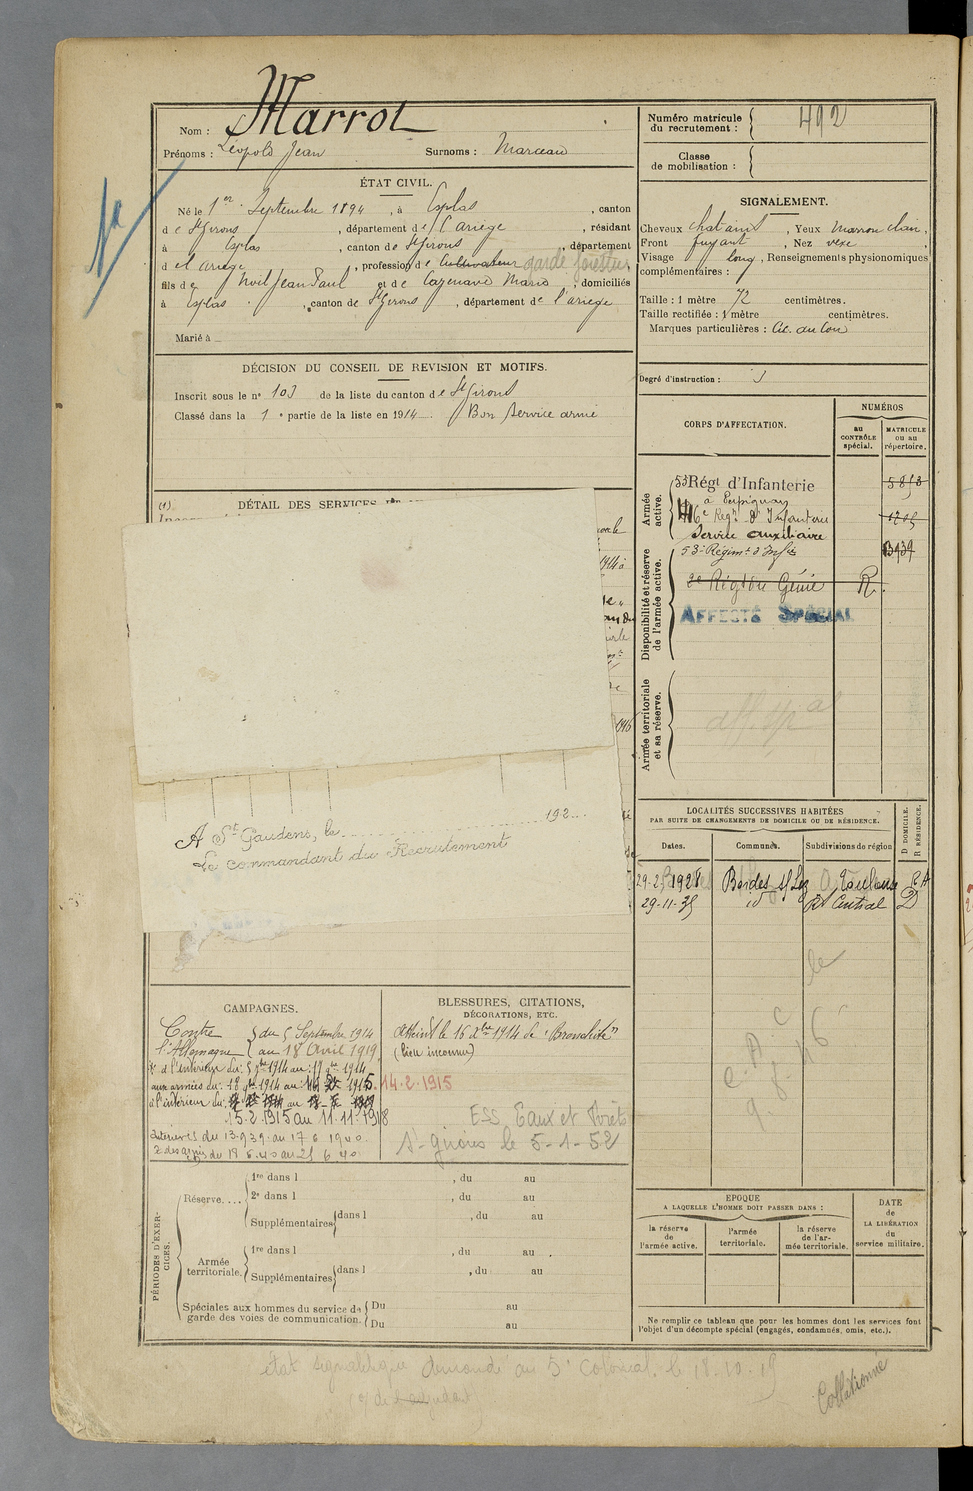 Nom : Marrot
Prénoms : Léopold Jean Surnoms : Marceau
ÉTAT CIVIL.
Né le 1er Septembre 1894, à Esplas, canton
de St Girons, département de l'Ariège, résidant
à Esplas, canton de St Girons, département
d el Ariège, profession de Cultivateur garde forestier,
fils de Jean Paul et de Cazenave Marie, domiciliés
à Esplas, canton de St Girons, département de l'ariège
Marié à
DÉCISION DU CONSEIL DE REVISION ET MOTIFS.
Inscrit sous le n° 103 de la liste du canton de St Girons
Classé dans la 1e partie de la liste en 1914. Bon Service armé
(1) DÉTAIL DES SERVICES
A St Gaudens, le 192
Le commandant du Recrutement
CAMPAGNES.
Contre l'Allemagne { du 5 Septembre 1914
au 18 Avril 1919
à l'intérieur du : 5 7bre 1914 au : 17 9bre 1914
aux armées du : 18 9bre 1914 au : 1915. 14-2-1915
à l'intérieur du : au
15.2.1915 au 11.11.1918
Intérieur du 13.9.39 au 17 6 1940.
Z des armées du 18 6.40 au 25 6 40
BLESSURES, CITATIONS,
DÉCORATIONS, ETC.
Atteint le 16 Xbre 1914 de "Bronchite"
(lieu inconnu)
ESS Eaux et Forêts
St Girons le 5-1-52
PÉRIODES D'EXERCICES.
Réserve....
1re dans l , du au
2e dans l , du au
Supplémentaires dans l , du au
Armée territoriale.
1re dans l , du au
Supplémentaires dans l , du au
Spéciales aux hommes du service de garde des voies de communication.
Du au
Du au
Numéro matricule du recrutement : 492
Classe de mobilisation :
SIGNALEMENT.
Cheveux chatains, Yeux marron clair,
Front fuyant, Nez vexe,
Visage long, Renseignements physionomiques
complémentaires :
Taille : 1 mètre 72 centimètres.
Taille rectifiée : 1 mètre centimètres.
Marques particulières : Cic. au cou
Degré d'instruction : 3
CORPS D'AFFECTATION.
NUMÉROS
au CONTRÔLE spécial.
MATRICULE ou au répertoire.
Armée active.
53 Régt d'Infanterie 5853
à Perpignan
416e Regt d'Infanterie
Service auxiliaire
Disponibilité et réserve de l'armée active.
53e Régimt d'Infie
2e Rég du Génie R.
AFFECTÉ SPÉCIAL
Armée territoriale et sa réserve.
aff. spal
LOCALITÉS SUCCESSIVES HABITÉES
PAR SUITE DE CHANGEMENTS DE DOMICILE OU DE RÉSIDENCE.
Dates. Communes. Subdivisions de région D DOMICILE. R RÉSIDENCE.
29-2-1928 Bordes s/ Lez Toulouse R
29-11-35 id Rt Central D
EPOQUE
A LAQUELLE L'HOMME DOIT PASSER DANS :
la réserve de l'armée active.
l'armée territoriale.
la réserve de l'armée territoriale.
DATE de LA LIBÉRATION du service militaire.
Ne remplir ce tableau que pour les hommes dont les services font
l'objet d'un décompte spécial (engagés, condamnés, omis, etc.).
état signalétique demandé au 5e Colonial. le 18.10.19
Collationné